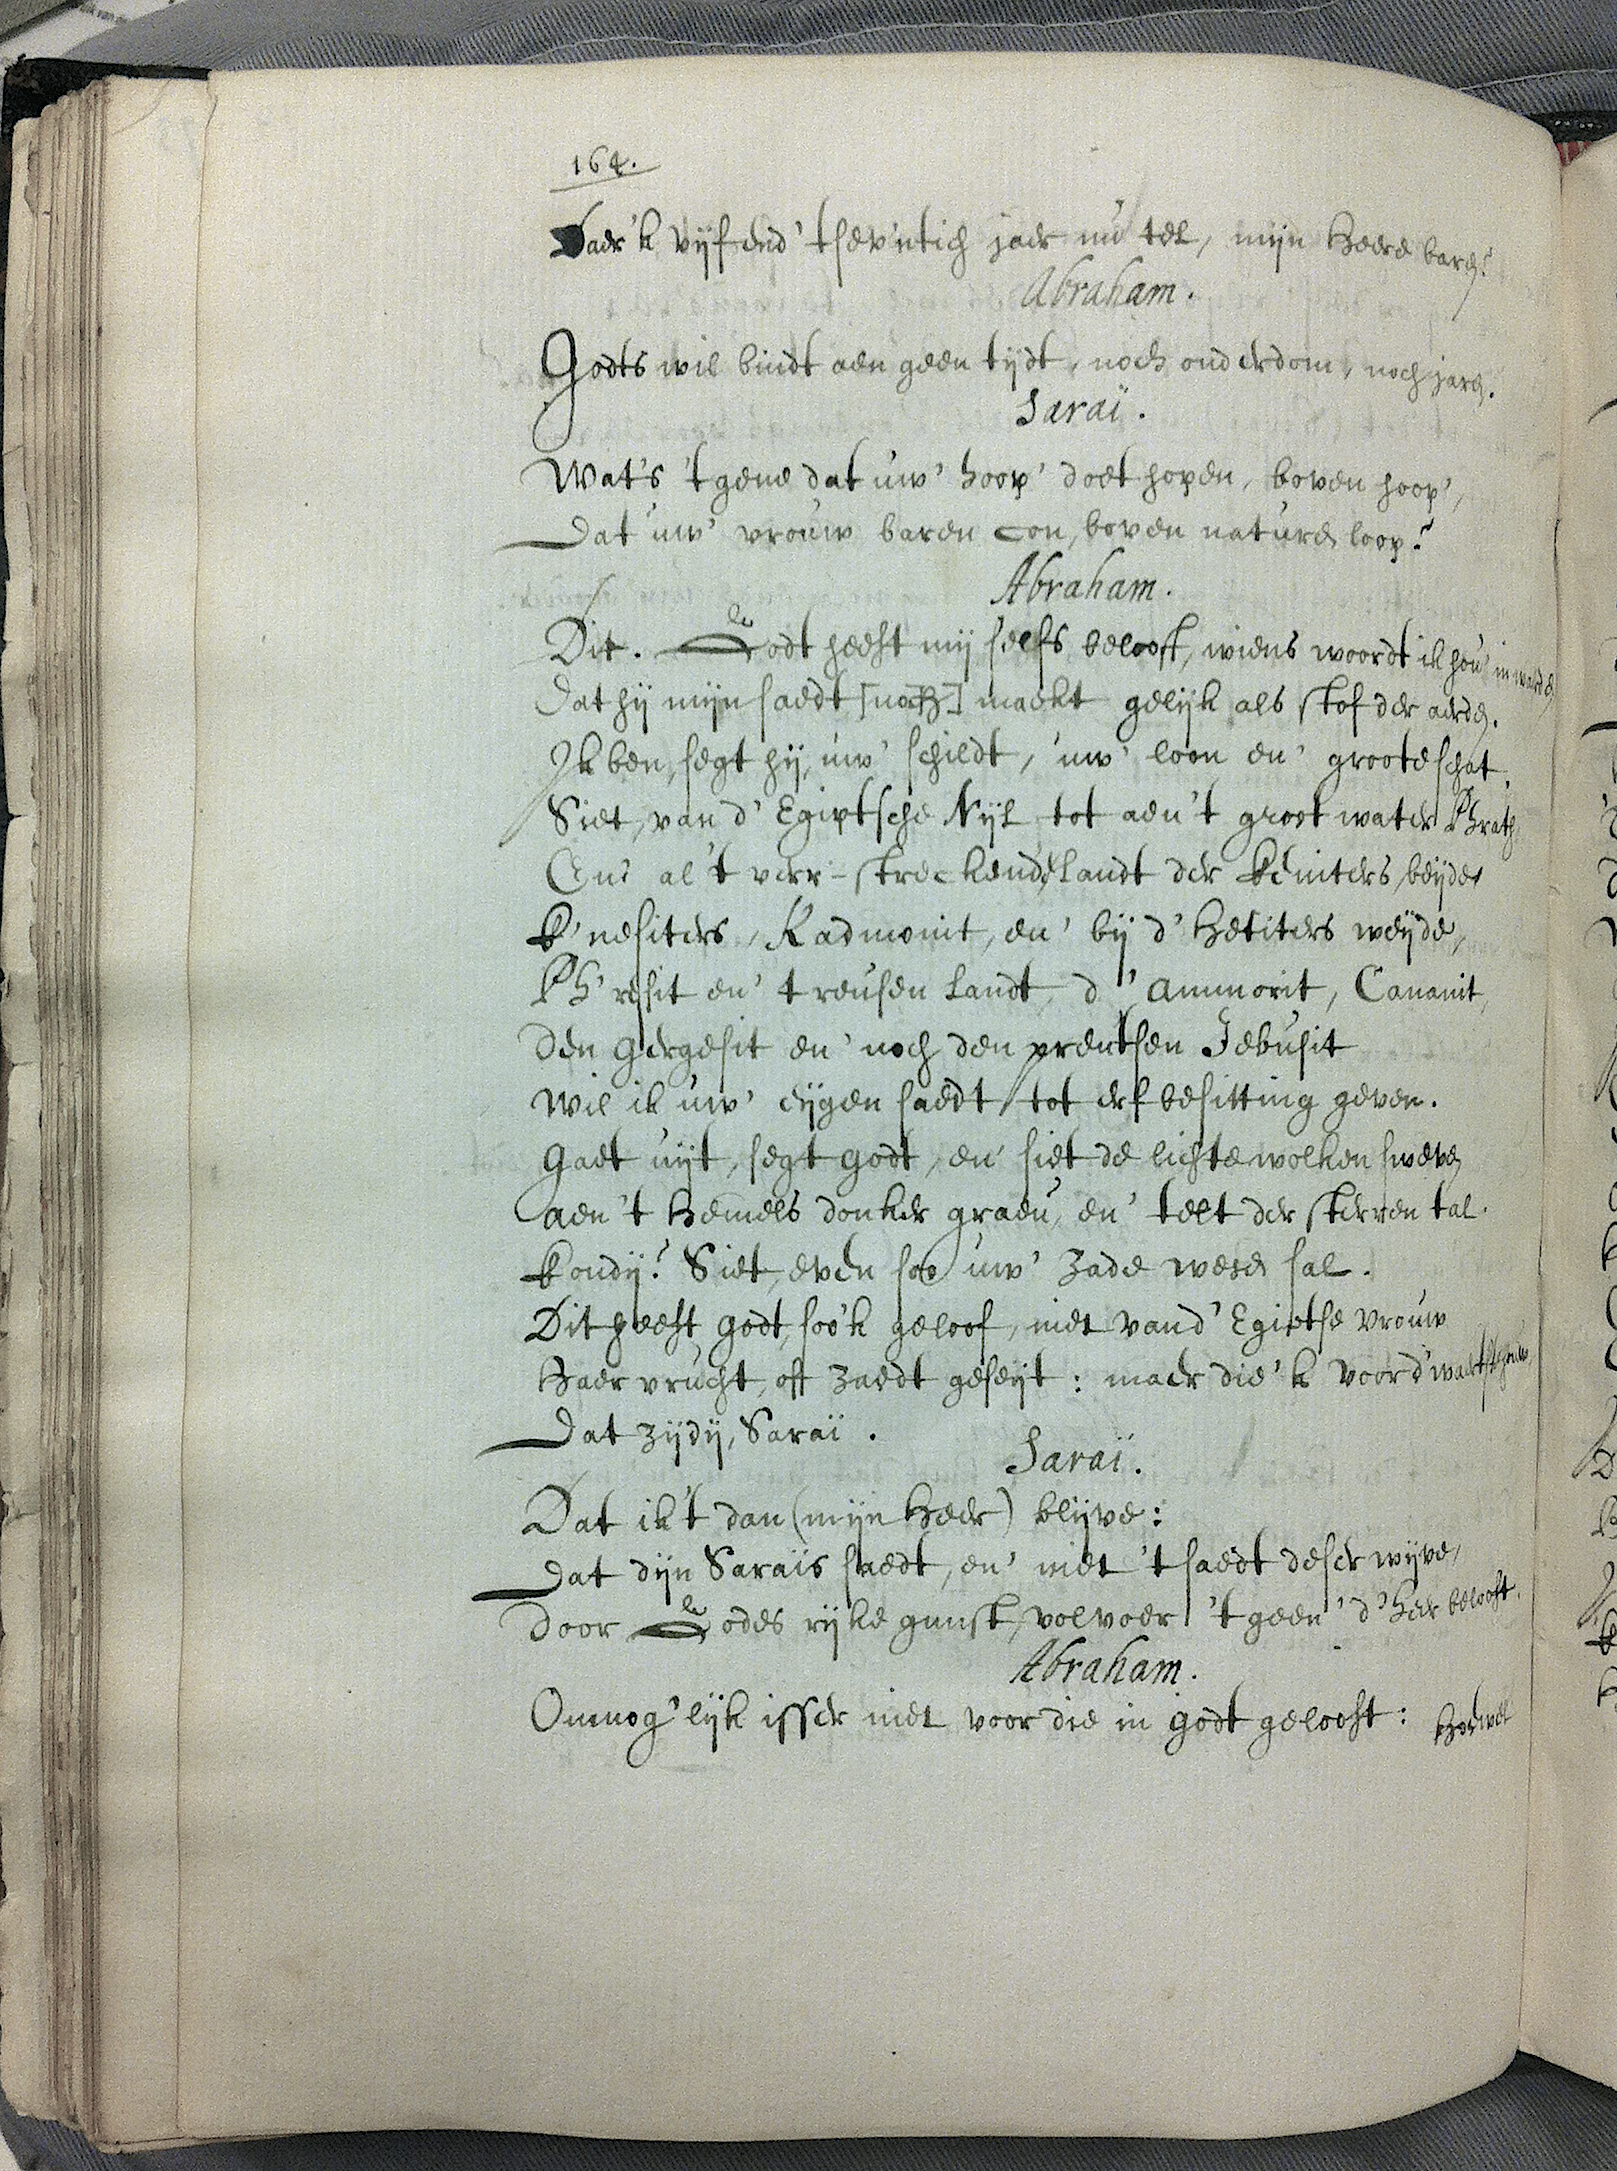 164.
Daer'k vijfend' tsev'ntich jaer nu tel, mijn Heere baren?
Abraham.
Godts wil bindt aen geen tijdt, noch ouderdom, noch jaren.
Saraï.
Wat's 't gene dat uw' hoop' doet hopen, boven hoop',
Dat uw' vrouw baren con, boven naturen loop?
Abraham.
Dit. Godt heeft mij selfs belooft, wiens woordt ik hou in waerden
Dat hij mijn saedt [noch] maekt gelijk als stof der aerden.
Ik ben, segt hij, uw' schildt, uw' loon en' groote schat.
Siet, van d' Egiptsche Nijl tot aen't groot water Phrath,
En' al 't verr-streckende Landt der Keniters, beyde
K'nesiters, Kadmonit, en' bij d' Hetiters weyde,
Ph'resit en' treusen Landt, d' Ammorit, Cananit,
Den Gergesit en' noch den prentsen Jebusit
Wil ik uw' eijgen saedt tot erfbesitting geven.
Gaet uijt, segt Godt, en' siet de lichte wolken sweven
aen't Hemels donker graeu, en' telt der sterren tal.
Kondij? Siet, even soo uw' Zade wesen sal.
Dit heeft Godt, soo'k geloof, niet van d' Egiptse vrouw
Haer vrucht, oft Zaedt geseyt: maer die'k voord'waerts
Dat zijdij, Saraï.
Saraï.
Dat ik't dan (mijn Heer) blijve:
Dat dijn Saraïs saedt, en' niet 't saedt deser wijve,
Door Godes rijke gunst, volvoer 't geen' d'Heer belooft.
Abraham.
Onmog'lijk isser niet voor die in Godt gelooft: Hoewel